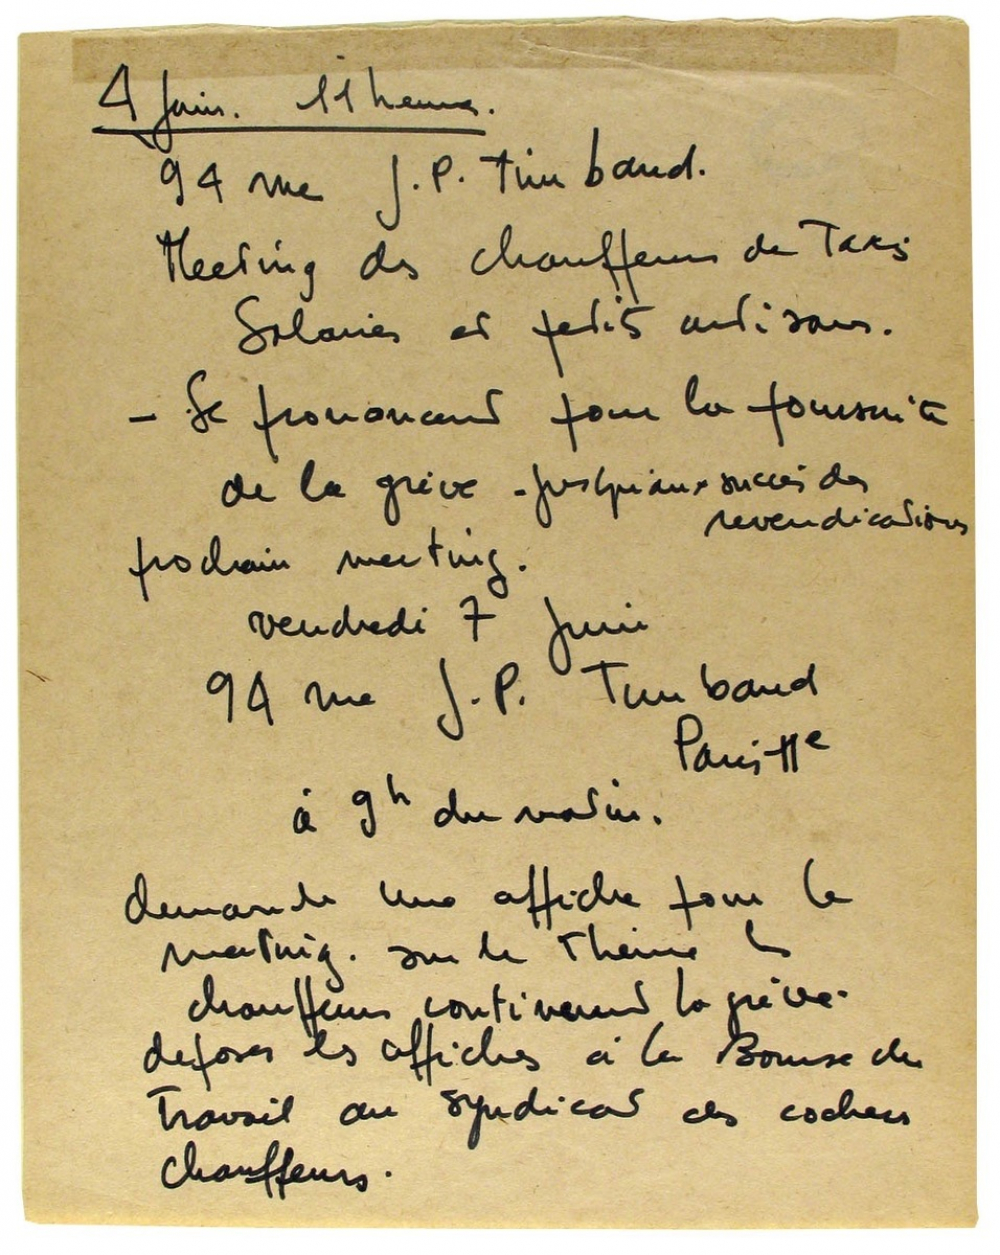 4 Juin. 11 heures.
94 rue J.P. Timbaud.
Meeting des chauffeurs de Taxis
Salariés et petits artisans.
- Se prononcent pour la poursuite
de la grève - jusqu'aux succès des
revendications
prochain meeting.
vendredi 7 Juin
94 rue J.P. Timbaud
Paris 11e
à 9h du matin.
demande une affiche pour le
meeting. sur le Thème les
chauffeurs continuent la grève.
déposer les affiches à la Bourse du
Travail au Syndicat des cochers
chauffeurs.